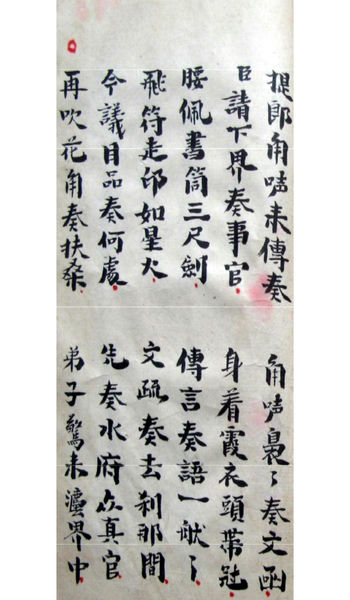 提郎角声来傳奏 角声裊々奏文函
臣請下界奏事官 身着霞衣頭帶冠
腰佩書筒三尺劍 傳言奏語一般々
飛符走印如星火 文疏奏去刹那間
今議目品奏何處 先奏水府众真官
再吹花角奏扶桑 弟子驚来瀍界中